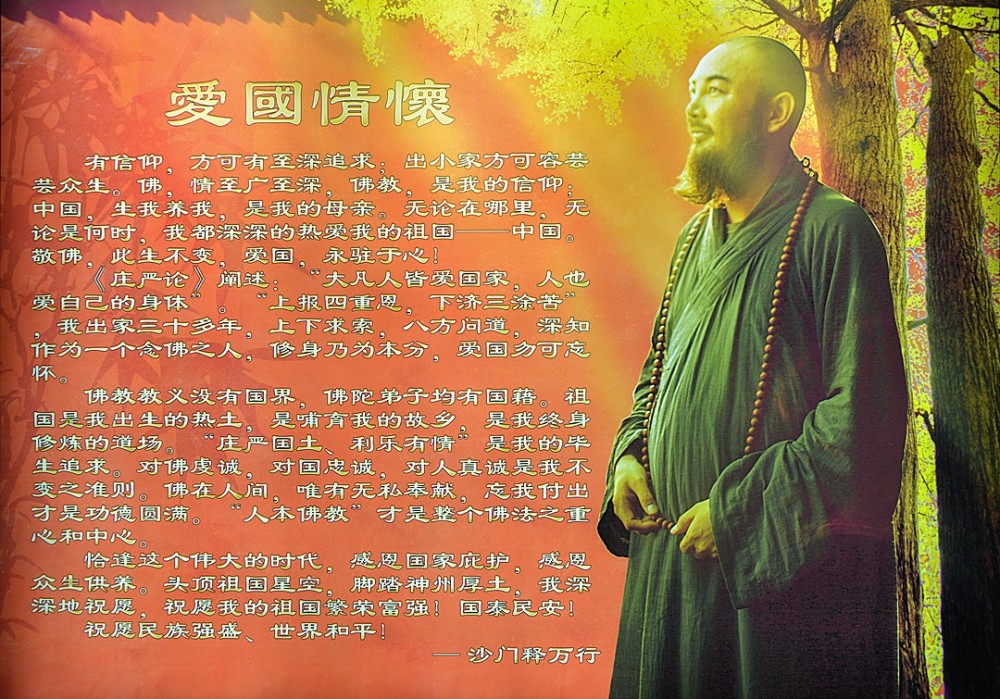 愛國情懷
有信仰，方可有至深追求；出小家方可容芸
芸众生。佛，情至广至深，佛教，是我的信仰；
中国，生我养我，是我的母亲。无论在哪里，无
论是何时，我都深深的热爱我的祖国——中国。
敬佛，此生不变，爱国，永驻于心！
《庄严论》阐述：“大凡人皆爱国家，人也
爱自己的身体”。“上报四重恩，下济三涂苦”
，我出家三十多年，上下求索，八方问道，深知
作为一个念佛之人，修身乃为本分，爱国勿可忘
怀。
佛教教义没有国界，佛陀弟子均有国藉。祖
国是我出生的热土，是哺育我的故乡，是我终身
修炼的道场。“庄严国土、利乐有情”是我的毕
生追求。对佛虔诚，对国忠诚，对人真诚是我不
变之准则。佛在人间，唯有无私奉献，忘我付出
才是功德圆满。“人本佛教”才是整个佛法之重
心和中心。
恰逢这个伟大的时代，感恩国家庇护，感恩
众生供养。头顶祖国星空，脚踏神州厚土，我深
深地祝愿，祝愿我的祖国繁荣富强！国泰民安！
祝愿民族强盛、世界和平！
—沙门释万行